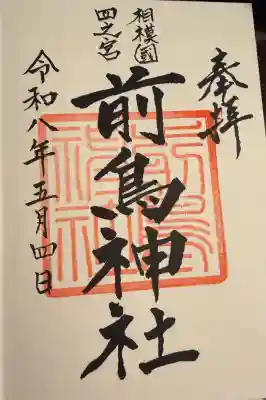 奉拝
相模國
四之宮
前鳥神社
令和八年五月四日